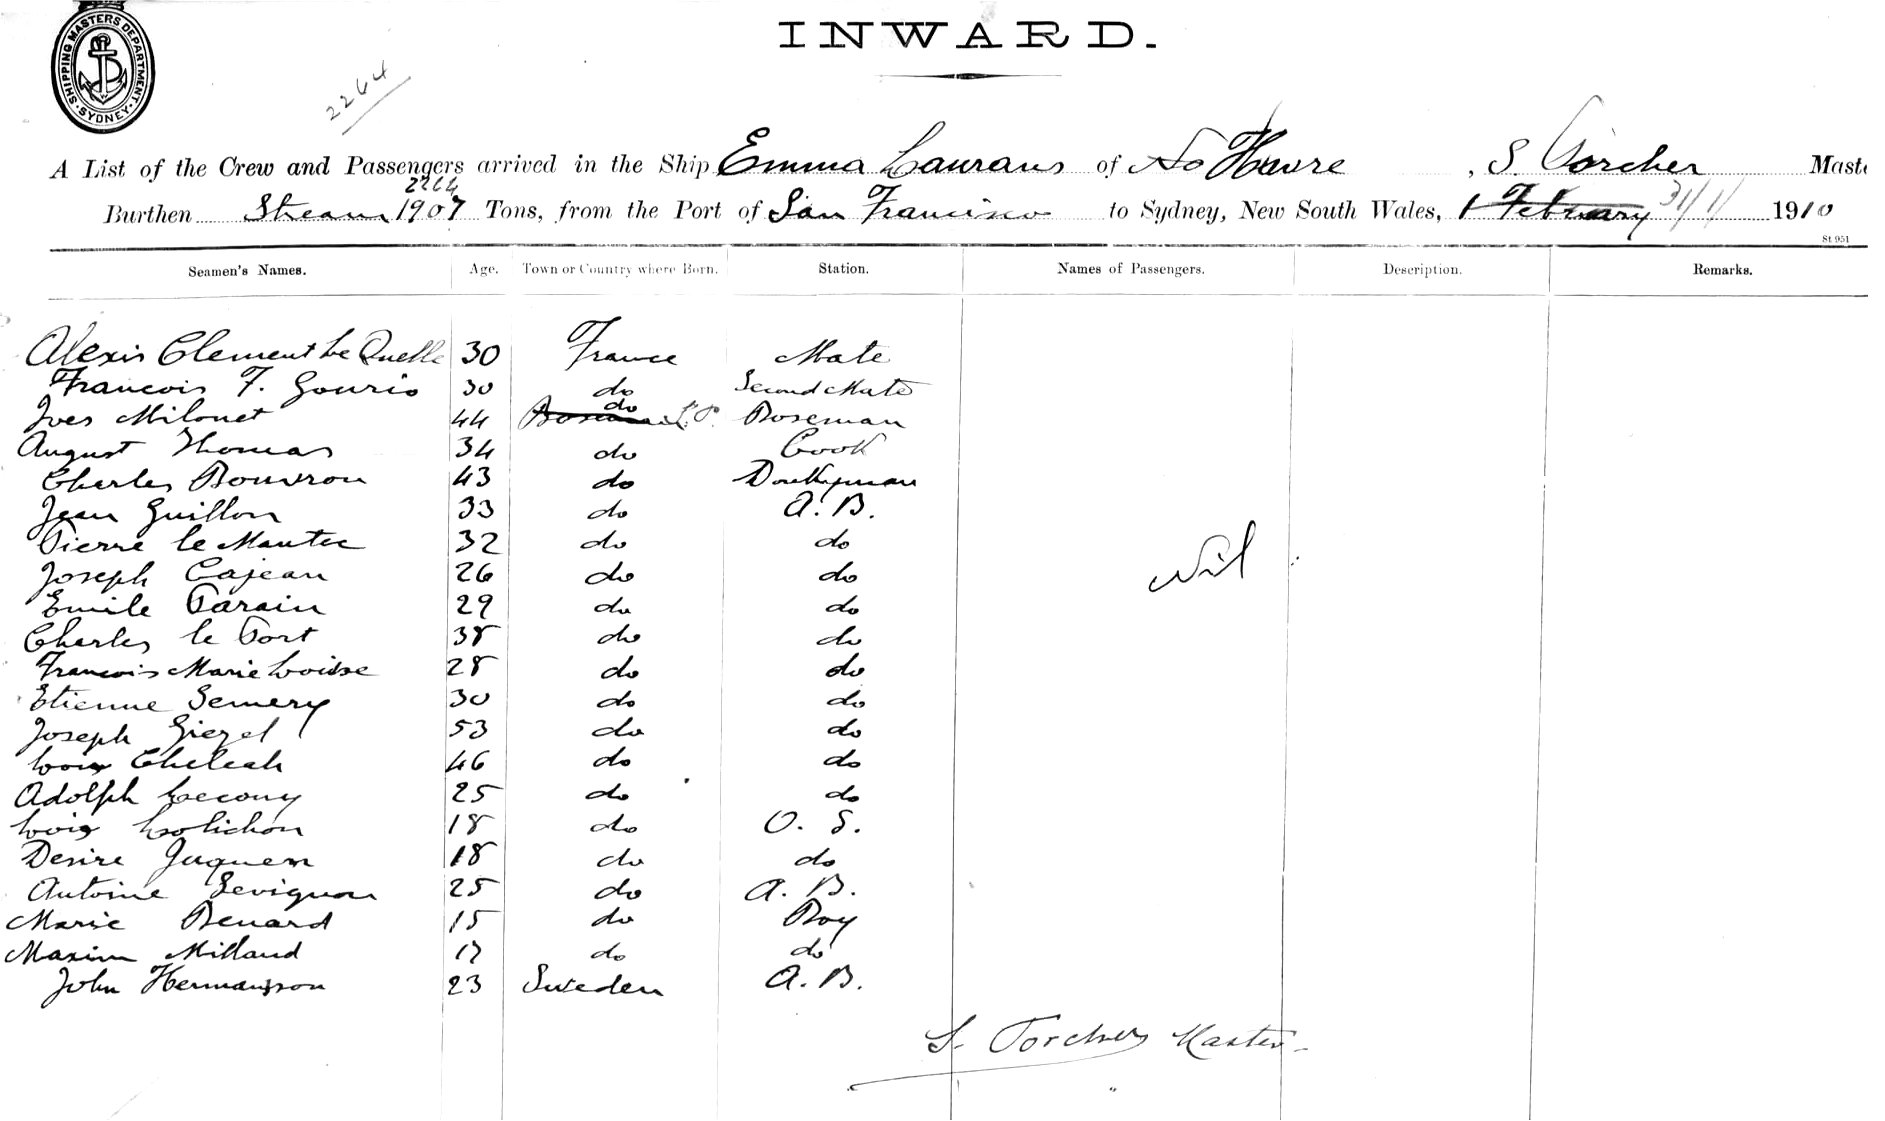 INWARD.
SHIPPING MASTERS DEPARTMENT
SYDNEY
2264
A List of the Crew and Passengers arrived in the Ship Emma Laurans of Havre, S. Porcher Maste
2264
Burthen Steam 1907 Tons, from the Port of San Francisco to Sydney, New South Wales, 1 February 31/1/ 1910
St 951
Seamen's Names. Age. Town or Country where Born. Station. Names of Passengers. Description. Remarks.
Alexis Clement Le Quelle 30 France Mate
Francois F. Gourio 30 do Second Mate
Ives Milonet 44 do Boseman
August Thomas 34 do Cook
Charles Bouvron 43 do Donkeyman
Jean Guillon 33 do A.B.
Pierre le Mautec 32 do do
Joseph Cajean 26 do do
Nil
Emile Parain 29 do do
Charles le Port 38 do do
Francois Marie Loisse 28 do do
Etienne Semery 30 do do
Joseph Giezel 53 do do
Louis Cheleah 46 do do
Adolph Lecony 25 do do
Louis Lolichon 18 do O. S.
Desire Juquem 18 do do
Antoine Sevignon 25 do A. B.
Marie Benard 15 do Boy
Maxim Millaud 17 do do
John Hermansson 23 Sweden A. B.
S. Porcher Master